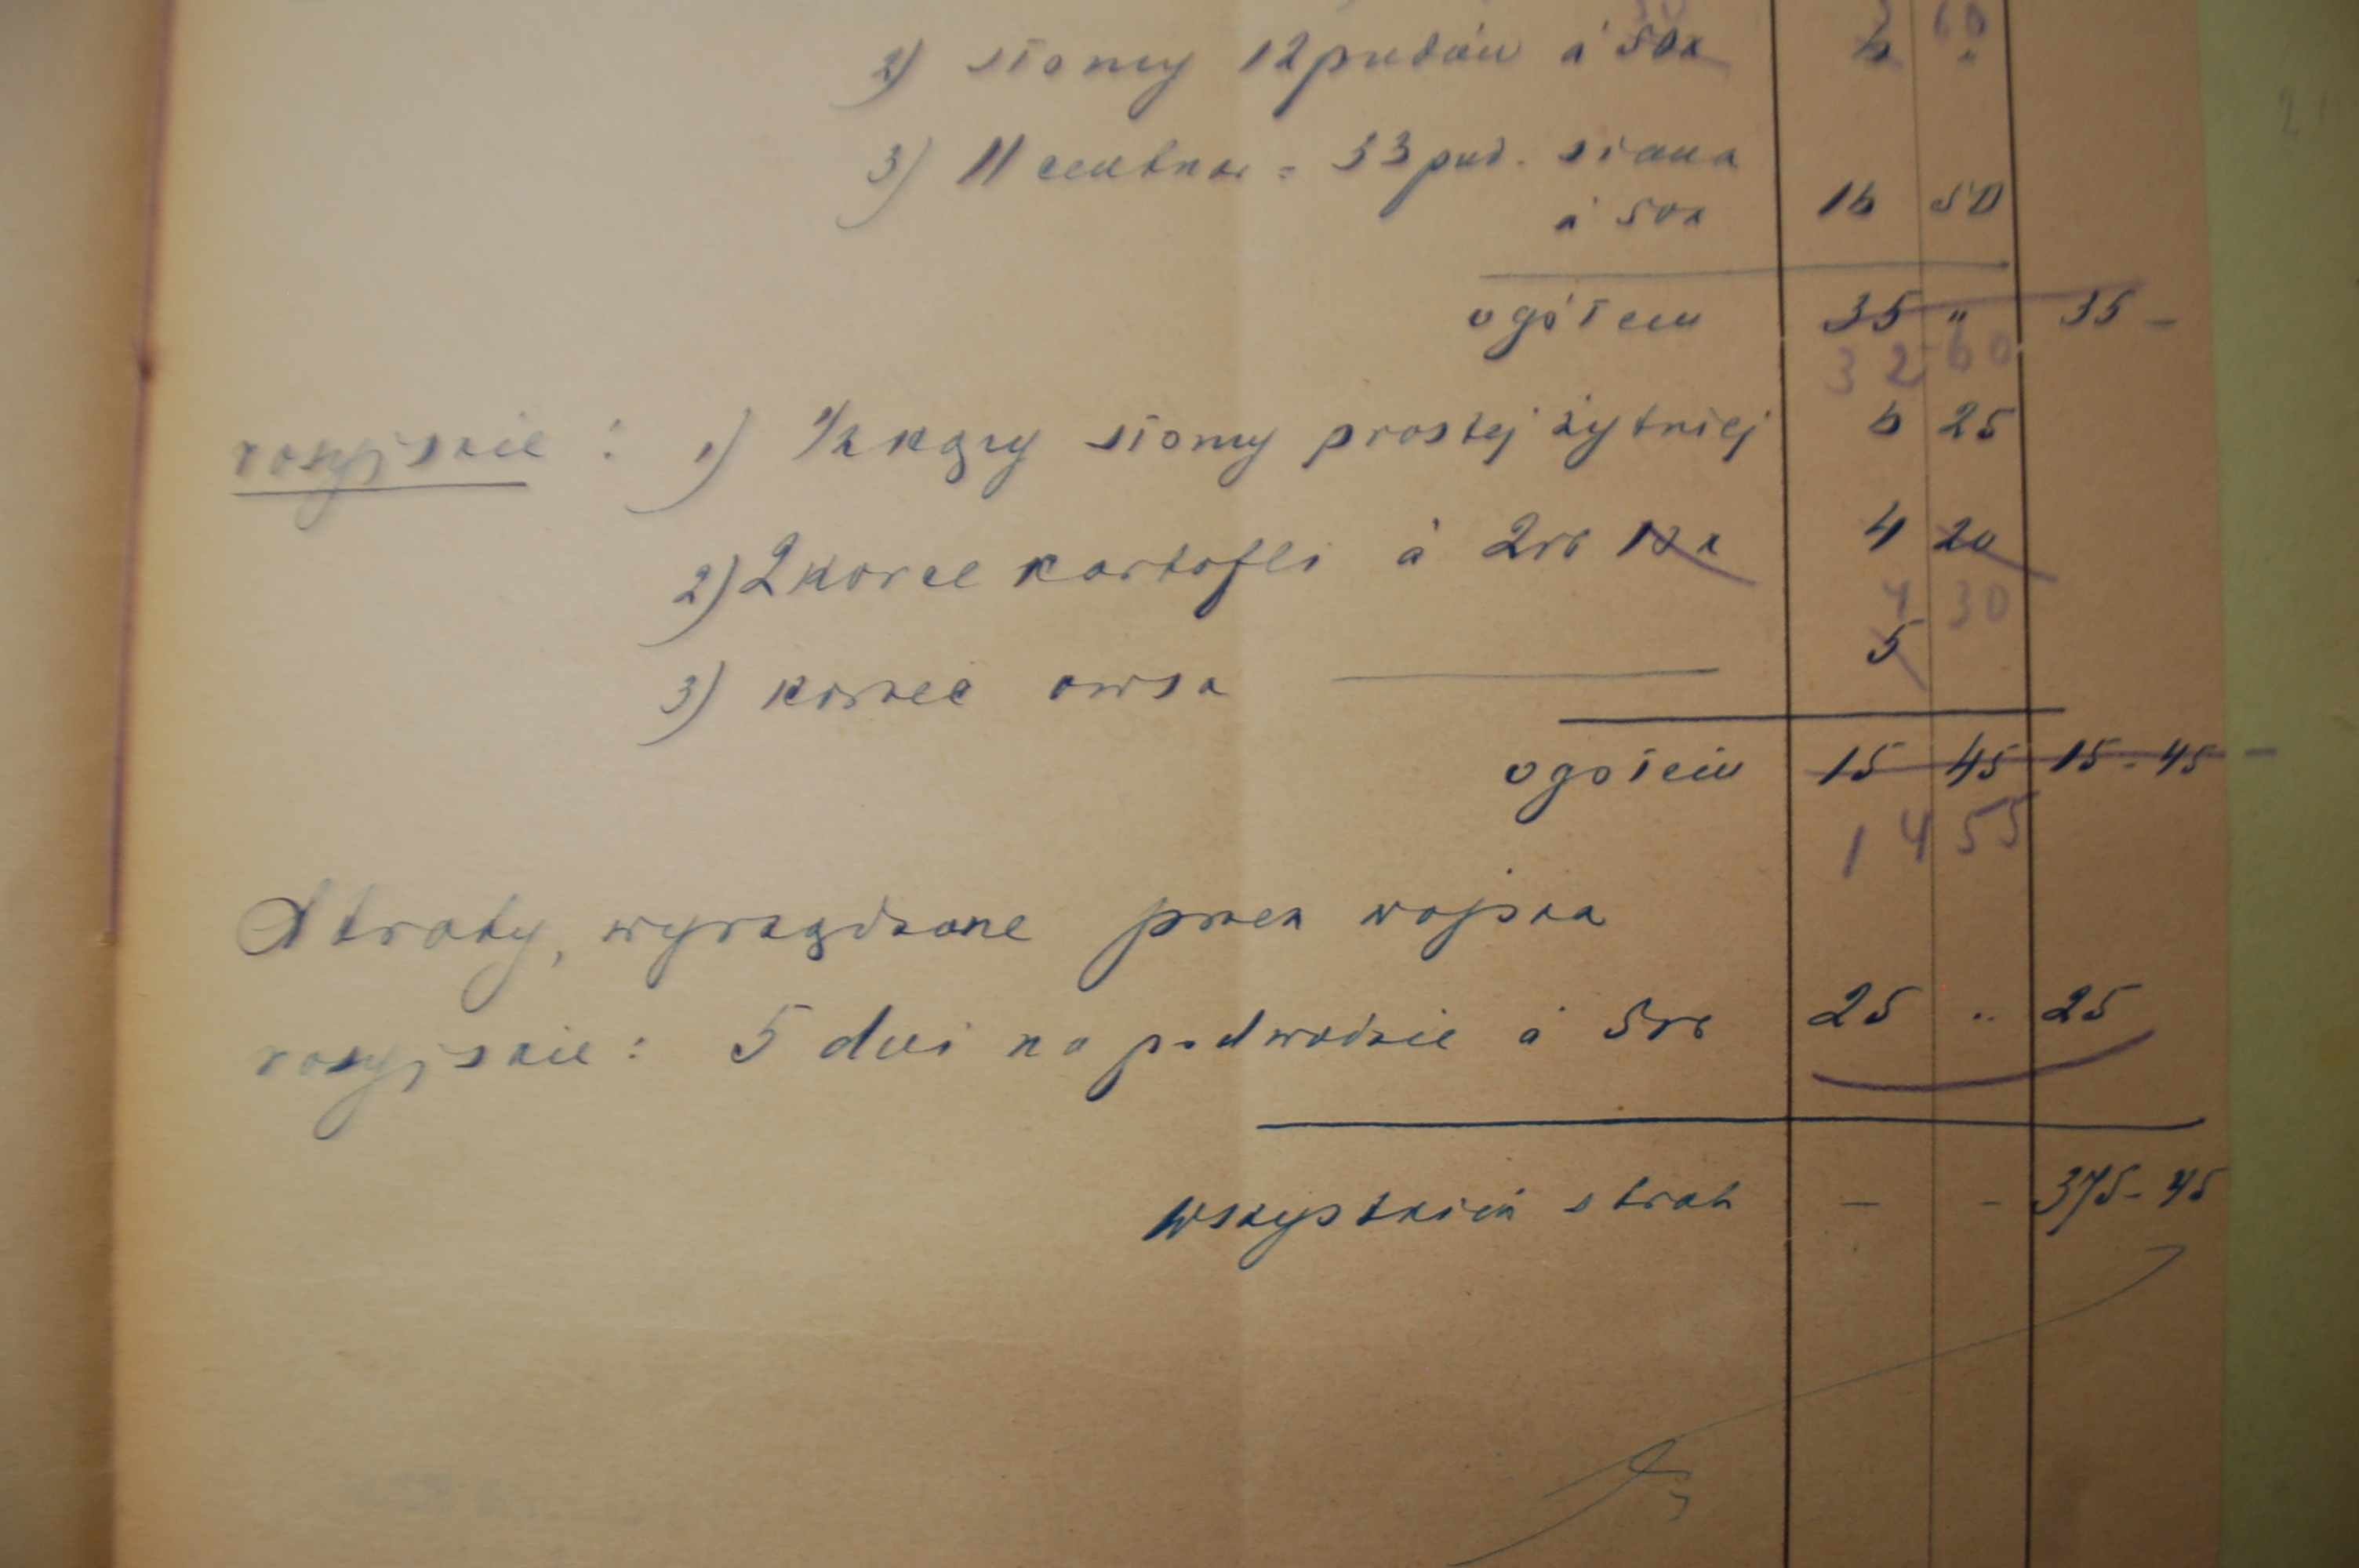 30 3 60
2) słomy 12 pudów á 50k 6 "
3) 11 centnar = 33 pud. siana
á 50k 16 50
ogółem 35 " 35 -
32 60
rosyjskie : 1) ½ kopy słomy prostej żytniej 6 25
2) 2 korce kartofli á 2rb 10k 4 20
4 30
3) korzec owsa 5
ogółem 15 45 15 - 45 -
14 55
Straty, wyrządzone przez wojska
rosyjskie : 5 dni na podwodzie á 5rb 25 " 25
wszystkich strat - - 375 - 45